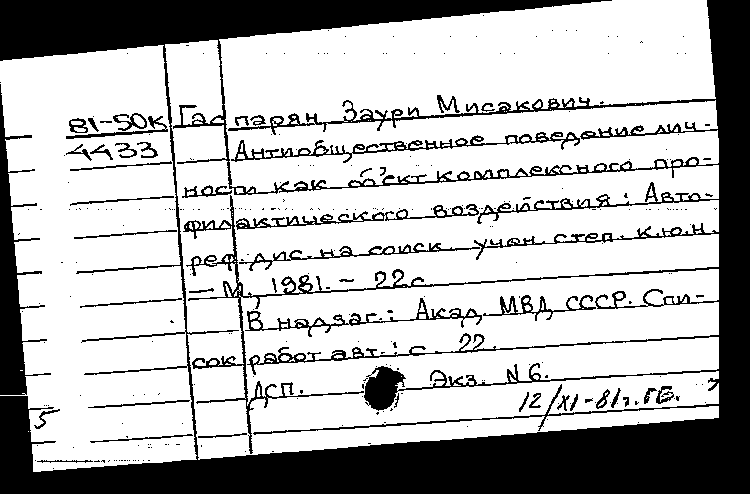 81-50к Гаспарян, Заури Мисакович.
4433 Антиобщественное поведение лич-
ности как объект комплексного про-
филактического воздействия: Авто-
реф. дис. на соиск. учен. степ. к.ю.н.
— М., 1981. - 22с.
В надзаг.: Акад. МВД СССР. Спи-
сок работ авт.: с. 22.
ДСП. Экз. N 6.
5 12/XI-81г.